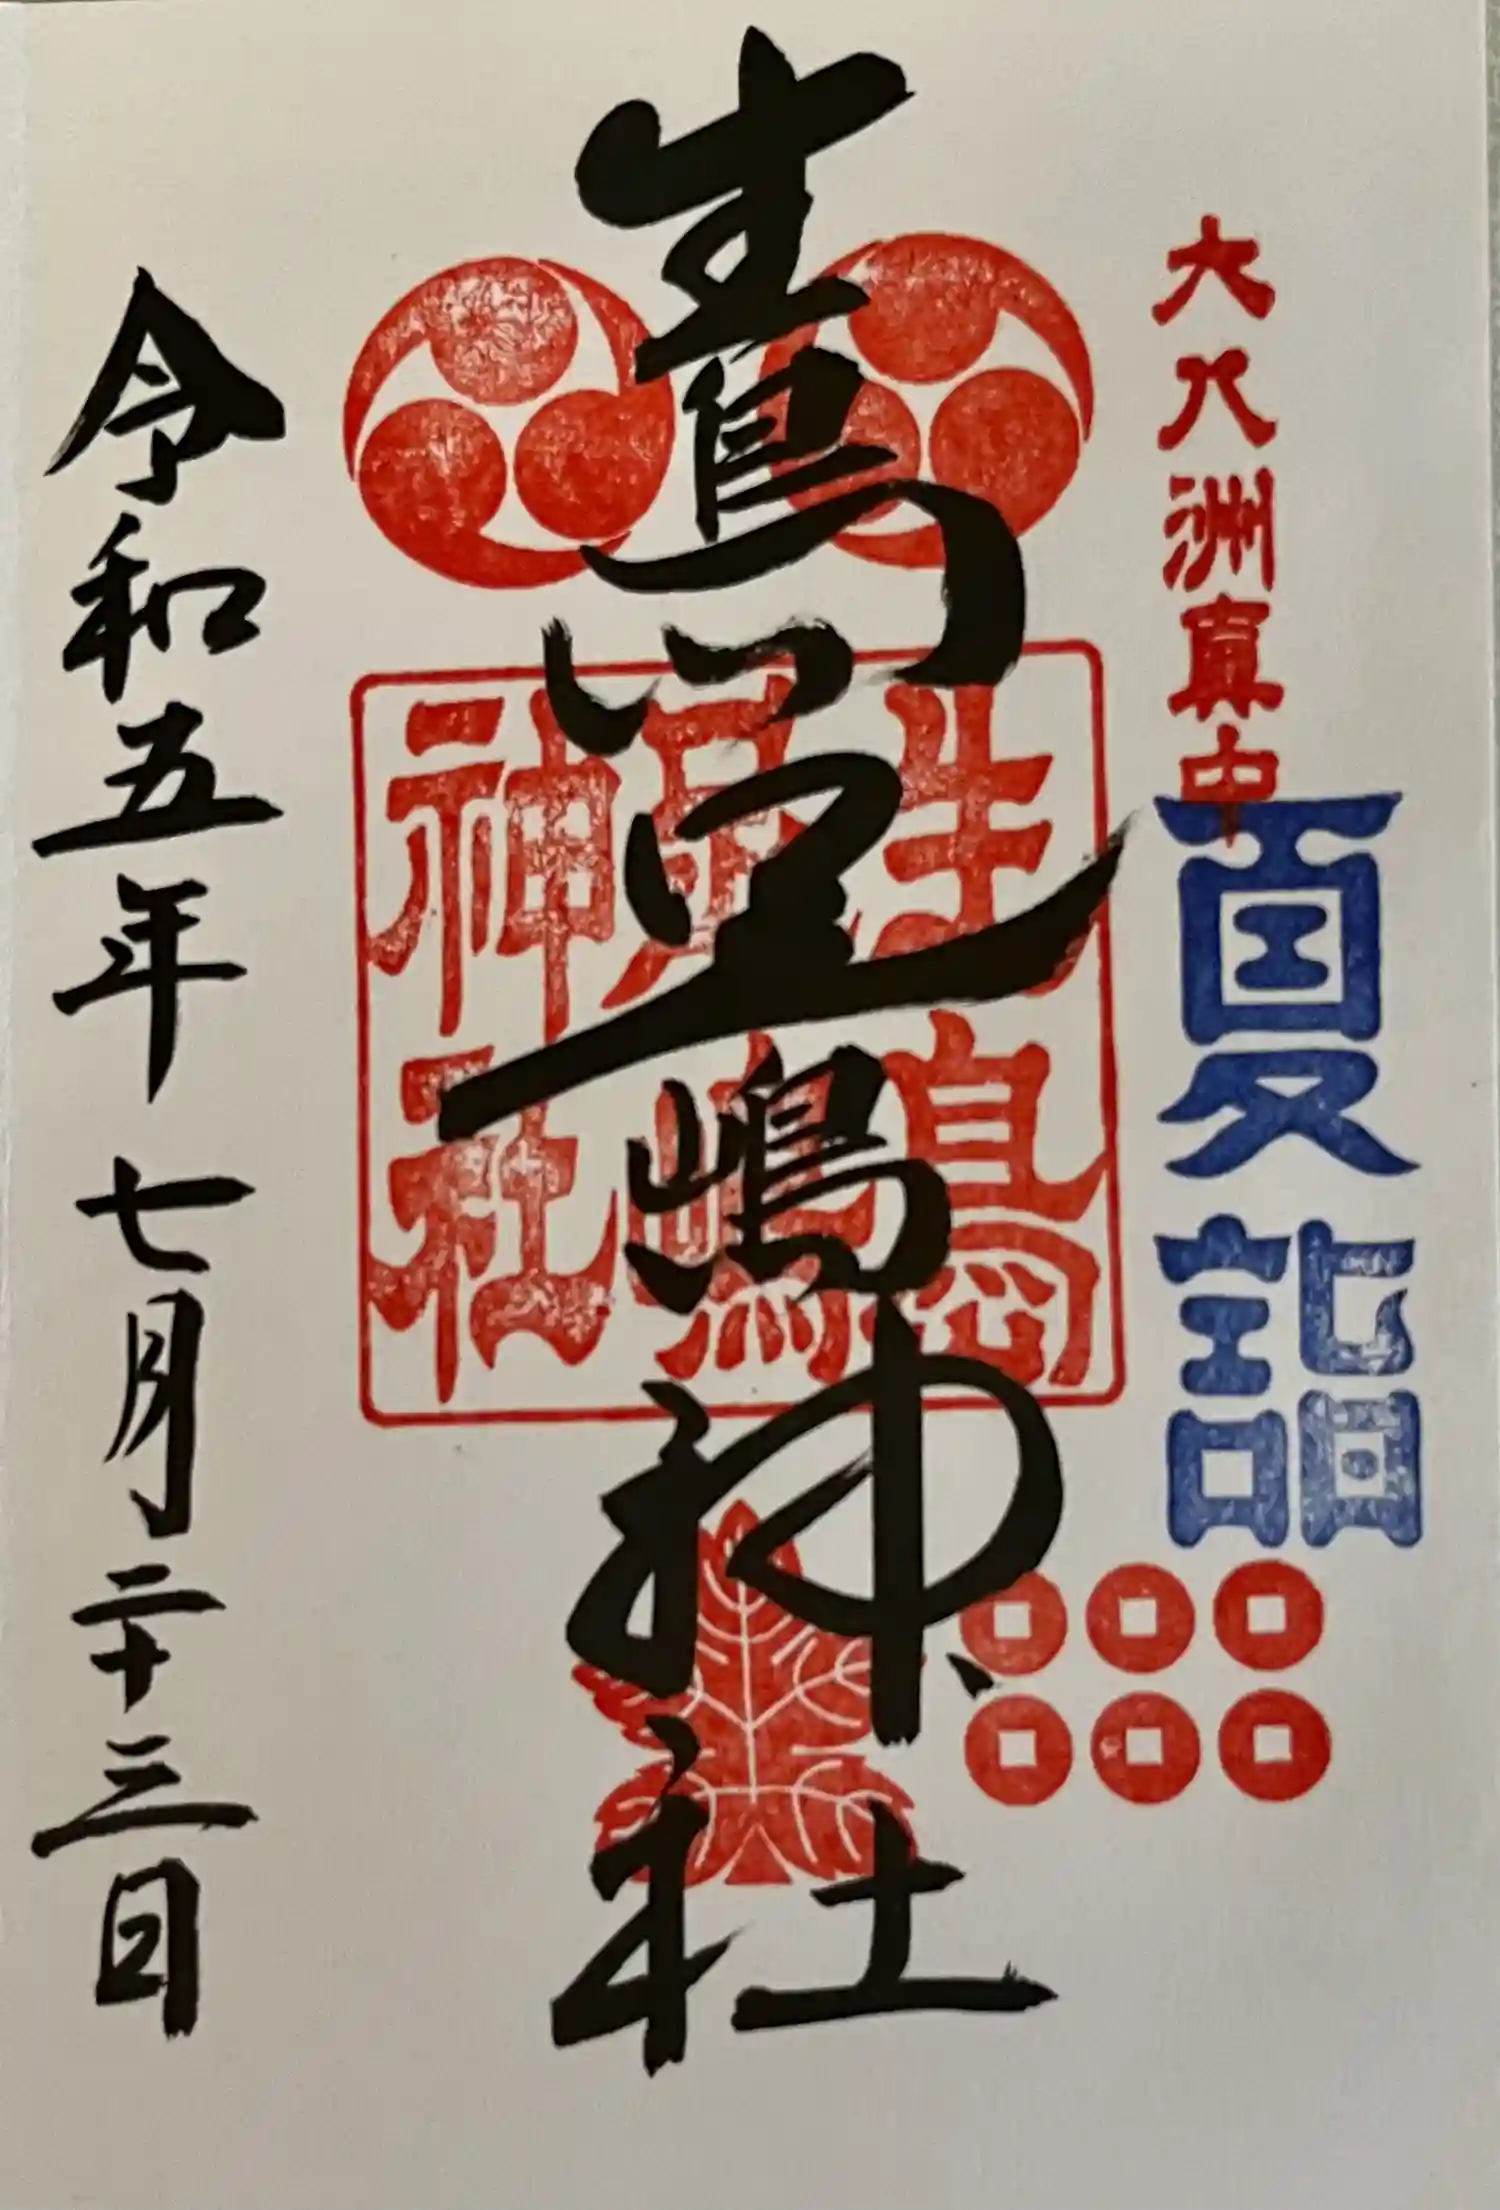 大八洲真中
夏詣
生島足嶋神社
生島
足嶋
神社
令和五年七月二十三日